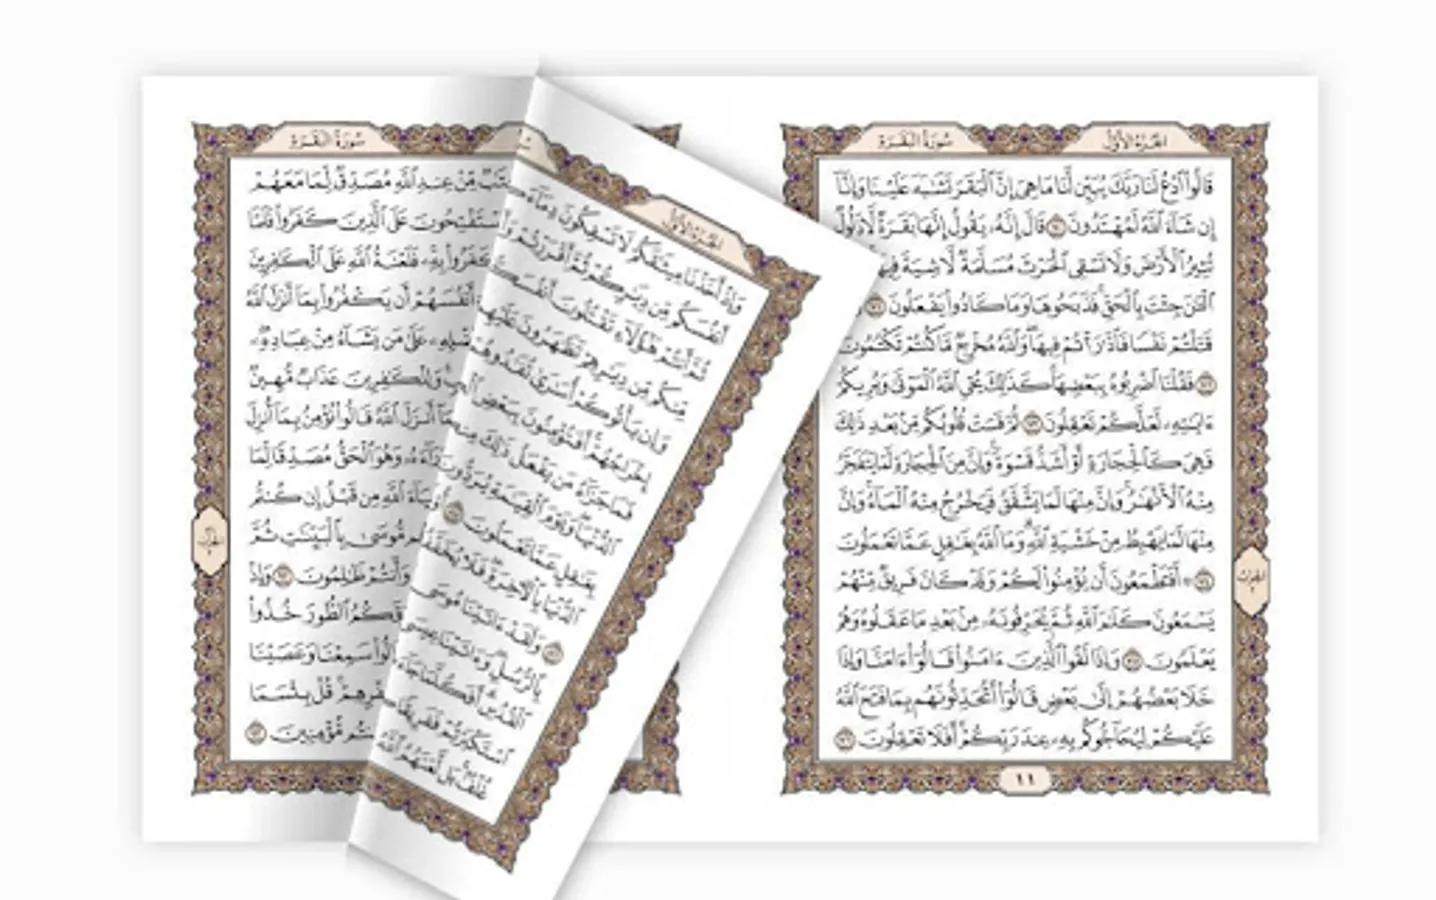 الجزء الأول
سورة البقرة
قَالُوا۟ ٱدْعُ لَنَا رَبَّكَ يُبَيِّن لَّنَا مَا هِىَ إِنَّ ٱلْبَقَرَ تَشَٰبَهَ عَلَيْنَا وَإِنَّآ
إِن شَآءَ ٱللَّهُ لَمُهْتَدُونَ ٧٠ قَالَ إِنَّهُۥ يَقُولُ إِنَّهَا بَقَرَةٌ لَّا ذَلُولٌ
تُثِيرُ ٱلْأَرْضَ وَلَا تَسْقِى ٱلْحَرْثَ مُسَلَّمَةٌ لَّا شِيَةَ فِيهَا
ٱلْـَٰٔنَ جِئْتَ بِٱلْحَقِّ فَذَبَحُوهَا وَمَا كَادُوا۟ يَفْعَلُونَ ٧١
قَتَلْتُمْ نَفْسًا فَٱدَّٰرَْٰٔتُمْ فِيهَا وَٱللَّهُ مُخْرِجٌ مَّا كُنتُمْ تَكْتُمُونَ
٧٢ فَقُلْنَا ٱضْرِبُوهُ بِبَعْضِهَا كَذَٰلِكَ يُحْىِ ٱللَّهُ ٱلْمَوْتَىٰ وَيُرِيكُمْ
ءَايَٰتِهِۦ لَعَلَّكُمْ تَعْقِلُونَ ٧٣ ثُمَّ قَسَتْ قُلُوبُكُم مِّنۢ بَعْدِ ذَٰلِكَ
فَهِىَ كَٱلْحِجَارَةِ أَوْ أَشَدُّ قَسْوَةً وَإِنَّ مِنَ ٱلْحِجَارَةِ لَمَا يَتَفَجَّرُ
مِنْهُ ٱلْأَنْهَٰرُ وَإِنَّ مِنْهَا لَمَا يَشَّقَّقُ فَيَخْرُجُ مِنْهُ ٱلْمَآءُ وَإِنَّ
مِنْهَا لَمَا يَهْبِطُ مِنْ خَشْيَةِ ٱللَّهِ وَمَا ٱللَّهُ بِغَٰفِلٍ عَمَّا تَعْمَلُونَ
٧٤ أَفَتَطْمَعُونَ أَن يُؤْمِنُوا۟ لَكُمْ وَقَدْ كَانَ فَرِيقٌ مِّنْهُمْ
يَسْمَعُونَ كَلَٰمَ ٱللَّهِ ثُمَّ يُحَرِّفُونَهُۥ مِنۢ بَعْدِ مَا عَقَلُوهُ وَهُمْ
يَعْلَمُونَ ٧٥ وَإِذَا لَقُوا۟ ٱلَّذِينَ ءَامَنُوا۟ قَالُوٓا۟ ءَامَنَّا وَإِذَا
خَلَا بَعْضُهُمْ إِلَىٰ بَعْضٍ قَالُوٓا۟ أَتُحَدِّثُونَهُم بِمَا فَتَحَ ٱللَّهُ
عَلَيْكُمْ لِيُحَآجُّوكُم بِهِۦ عِندَ رَبِّكُمْ أَفَلَا تَعْقِلُونَ ٧٦
١١
الجزء الأول
وَإِذْ أَخَذْنَا مِيثَٰقَكُمْ لَا تَسْفِكُونَ دِمَآءَكُمْ
أَنفُسَكُم مِّن دِيَٰرِكُمْ ثُمَّ أَقْرَرْتُمْ
ثُمَّ أَنتُمْ هَٰٓؤُلَآءِ تَقْتُلُونَ أَنفُسَكُمْ
مِنكُم مِّن دِيَٰرِهِمْ تَظَٰهَرُونَ عَلَيْهِم
وَإِن يَأْتُوكُمْ أُسَٰرَىٰ تُفَٰدُوهُمْ
إِخْرَاجُهُمْ أَفَتُؤْمِنُونَ بِبَعْضِ
فَمَا جَزَآءُ مَن يَفْعَلُ ذَٰلِكَ
ٱلدُّنْيَا وَيَوْمَ ٱلْقِيَٰمَةِ يُرَدُّونَ
بِغَٰفِلٍ عَمَّا تَعْمَلُونَ ٨٥
ٱلدُّنْيَا بِٱلْـَٔاخِرَةِ فَلَا يُخَفَّفُ
٨٦ وَلَقَدْ ءَاتَيْنَا مُوسَى
بِٱلرُّسُلِ وَءَاتَيْنَا عِيسَى
ٱلْقُدُسِ أَفَكُلَّمَا جَآءَكُمْ
ٱسْتَكْبَرْتُمْ فَفَرِيقًا
غُلْفٌۢ بَل لَّعَنَهُمُ ٱللَّهُ
سورة البقرة
مِّنْ عِندِ ٱللَّهِ مُصَدِّقٌ لِّمَا مَعَهُمْ
يَسْتَفْتِحُونَ عَلَى ٱلَّذِينَ كَفَرُوا۟ فَلَمَّا
كَفَرُوا۟ بِهِۦ فَلَعْنَةُ ٱللَّهِ عَلَى ٱلْكَٰفِرِينَ
أَنفُسَهُمْ أَن يَكْفُرُوا۟ بِمَآ أَنزَلَ ٱللَّهُ
فَضْلِهِۦ عَلَىٰ مَن يَشَآءُ مِنْ عِبَادِهِۦ
وَلِلْكَٰفِرِينَ عَذَابٌ مُّهِينٌ
أَنزَلَ ٱللَّهُ قَالُوا۟ نُؤْمِنُ بِمَآ أُنزِلَ
وَرَآءَهُۥ وَهُوَ ٱلْحَقُّ مُصَدِّقًا لِّمَا
أَنۢبِيَآءَ ٱللَّهِ مِن قَبْلُ إِن كُنتُم
مُّوسَىٰ بِٱلْبَيِّنَٰتِ ثُمَّ
وَأَنتُمْ ظَٰلِمُونَ ٩٢ وَإِذْ
فَوْقَكُمُ ٱلطُّورَ خُذُوا۟
قَالُوا۟ سَمِعْنَا وَعَصَيْنَا
قُلْ بِئْسَمَا
مُّؤْمِنِينَ ٩٣